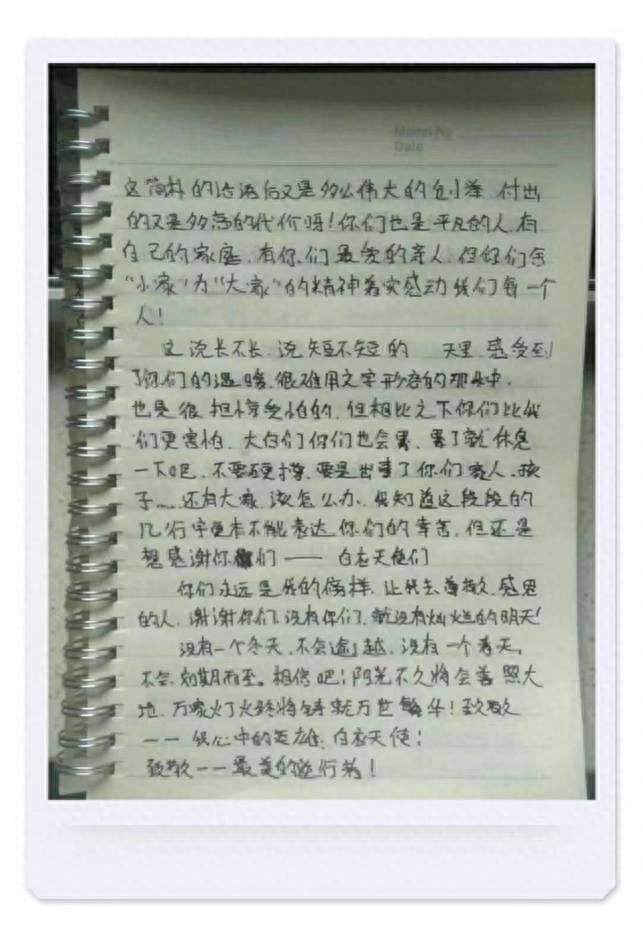 Date
这简朴的话语后又是多么伟大的 付出
的又是多高的代价呀!你们也是平凡的人,有
自己的家庭,有你们最爱的亲人,但你们舍
“小家”为“大家”的精神着实感动我们每一个
人!
这说长不长,说短不短的 天里,感受到
了你们的温暖,很难用文字形容的
也是很担惊受怕的,但相比之下你们比我
们更害怕,大白们你们也会累,累了就休息
一下吧,不要硬撑,要是出事了你们家人、孩
子……还有大家,该怎么办,我知道这段段的
几行字更本不能表达你们的幸苦,但还是
想感谢你们——白衣天使们
你们永远是我的傍样,让我去尊敬、感恩
的人,谢谢你们,没有你们,就没有灿烂的明天!
没有一个冬天,不会逾越,没有一个春天,
不会如期而至。相信吧!阳光不久将会普照大
地,万家灯火终将铸就万世繁华!致敬
——我心中的英雄,白衣天使!
致敬——最美的逆行者!